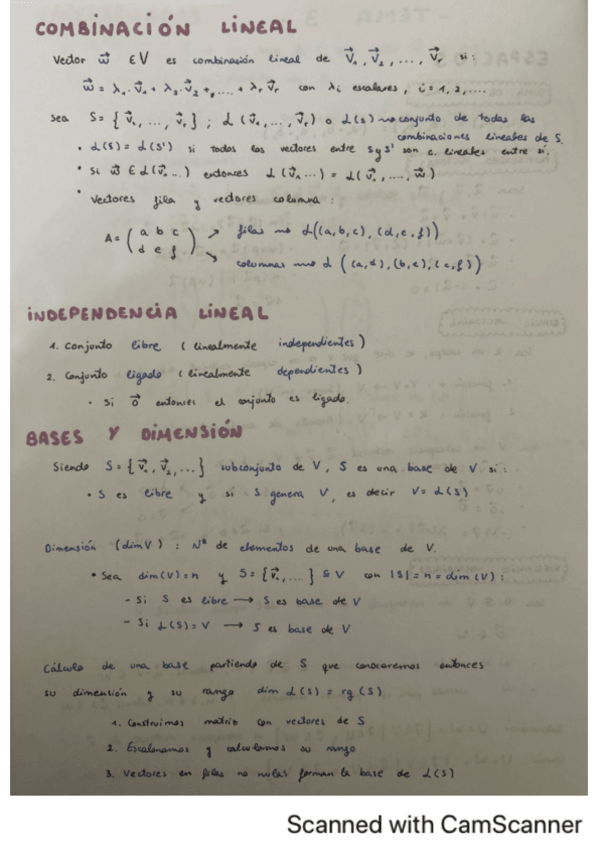 COMBINACIÓN LINEAL
Vector w⃗ ∈ V es combinación lineal de v⃗₁, v⃗₂, ..., v⃗ᵣ si:
w⃗ = λ₁·v⃗₁ + λ₂·v⃗₂ + ,.... + λᵣ v⃗ᵣ con λᵢ escalares, i = 1, 2, ....
Sea S = { v⃗₁, ..., v⃗ᵣ } ; L (v⃗₁, ..., v⃗ᵣ) o L(S) → conjunto de todas las
combinaciones lineales de S.
• L(S) = L(S') si todos los vectores entre S y S' son c. lineales entre sí.
• Si w⃗ ∈ L(v⃗₁ ...) entonces L (v⃗₁ ...) = L(v⃗₁, ..., w⃗)
• Vectores fila y vectores columna:
A = ( a b c → filas → L((a,b,c), (d,e,f))
d e f ) → columnas → L ((a,d), (b,e), (c,f))
INDEPENDENCIA LINEAL
1. Conjunto libre (linealmente independientes)
2. Conjunto ligado (linealmente dependientes)
• Si 0⃗ entonces el conjunto es ligado.
BASES Y DIMENSIÓN
Siendo S = { v⃗₁, v⃗₂, ... } subconjunto de V, S es una base de V si:
• S es libre y si S genera V, es decir V = L(S)
Dimensión (dim V) : Nº de elementos de una base de V.
• Sea dim(V) = n y S = { v⃗₁, ... } ⊆ V con |S| = n = dim (V) :
- Si S es libre → S es base de V
- Si L(S) = V → S es base de V
Cálculo de una base partiendo de S que conoceremos entonces
su dimensión y su rango dim L(S) = rg(S)
1. Construimos matriz con vectores de S
2. Escalonamos y calculamos su rango
3. Vectores en filas no nulas forman la base de L(S)
Scanned with CamScanner